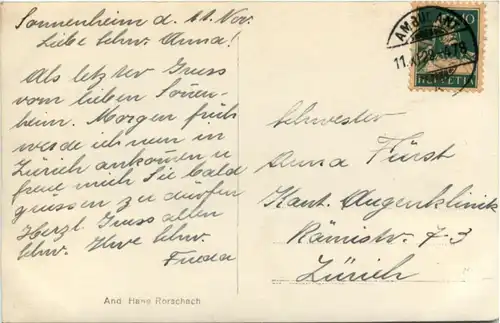 Sonnenheim d. 11. Nov.
Liebe Schw. Anna!
Als letzter Gruss
vom lieben Sonnen-
heim. Morgen früh
werde ich nun in
Zürich ankommen u
freue mich Sie bald
grüssen zu dürfen
Herzl. Gruss allen
Schw. Ihre Schw.
Frieda
And. Hane Rorschach
10
HELVETIA
Schwester
Anna Fürst
Kant. Augenklinik
Rämistr. 73
Zürich